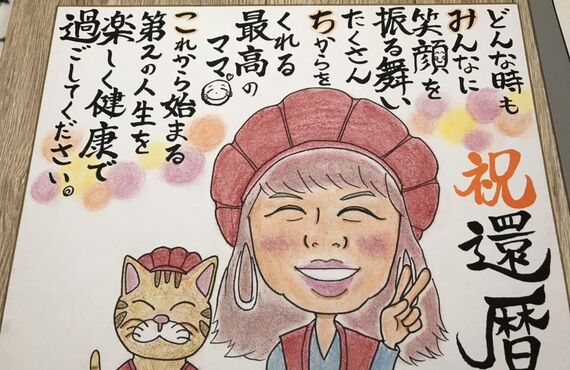 祝還暦
どんな時も
みんなに
笑顔を
振る舞い
たくさん
ちからを
くれる
最高の
ママ
これから始まる
第2の人生を
楽しく健康で
過ごしてください。